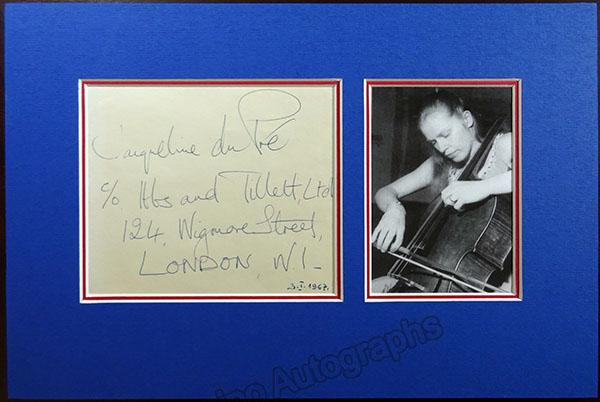 Jacqueline du Pré
c/o Ibbs and Tillett, Ltd
124, Wigmore Street,
LONDON, W.1.
3.I.1967.
Autographs